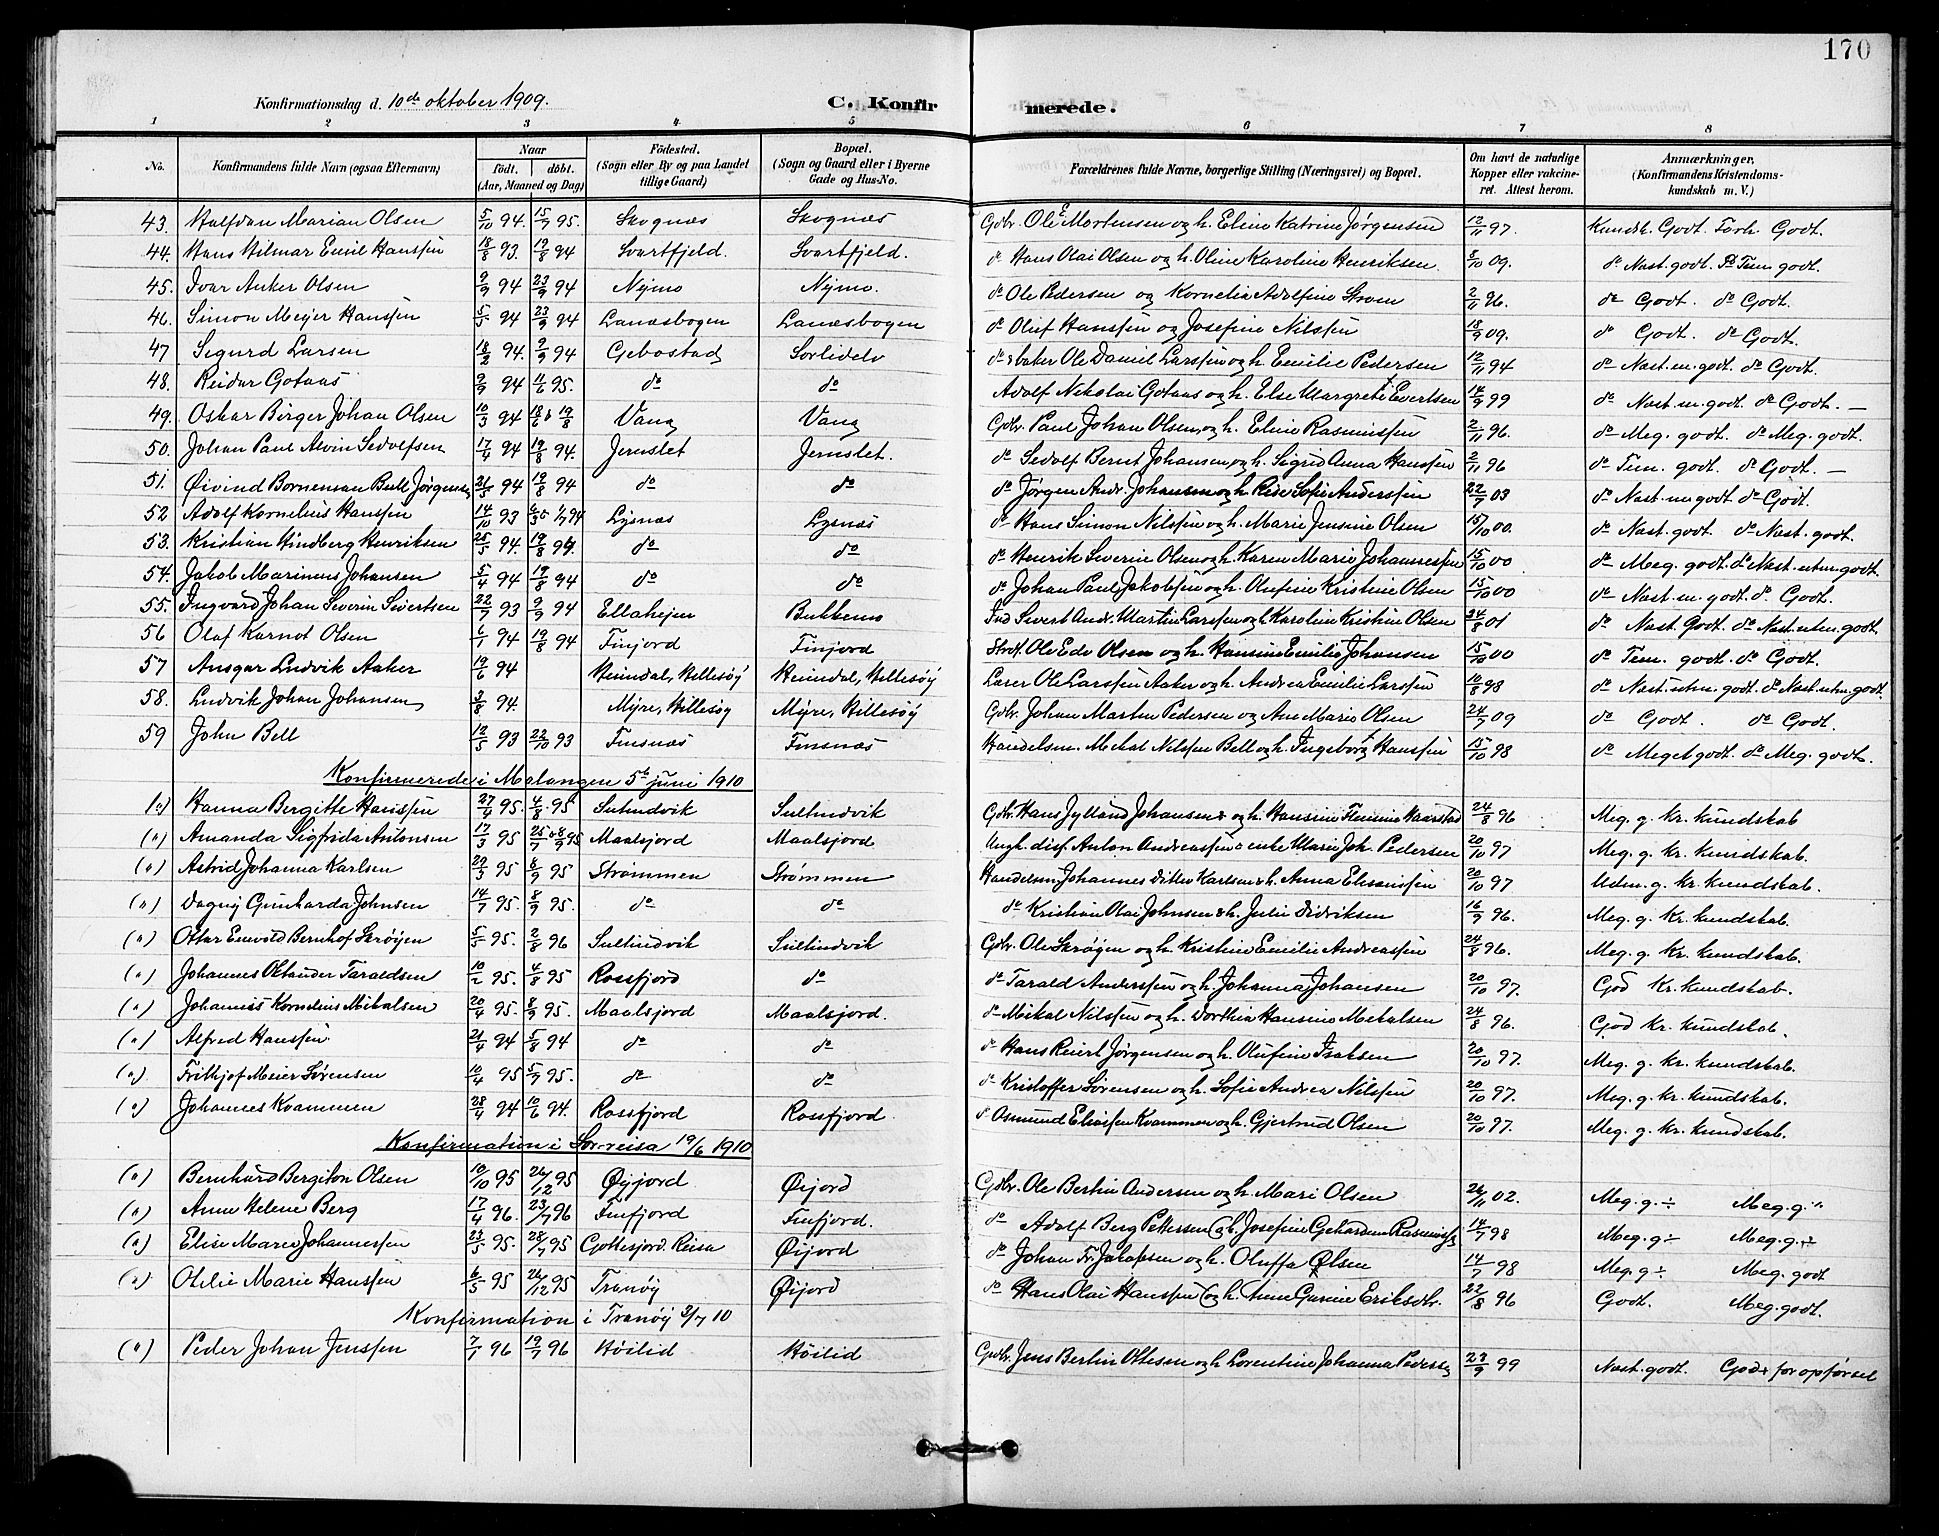 170
Konfirmationsdag d. 10de oktober 1909.
C. Konfirmerede.
1 2 3 4 5 6 7 8
No. Konfirmandens fulde Navn (ogsaa Efternavn) Naar født. døbt. (Aar, Maaned og Dag) Fødested. (Sogn eller By og paa Landet tillige Gaard) Bopæl. (Sogn og Gaard eller i Byerne Gade og Hus-No. Forældrenes fulde Navne, borgerlige Stilling (Næringsvei) og Bopæl. Om havt de naturlige Kopper eller vakcineret. Attest herom. Anmærkninger, (Konfirmandens Kristendomskundskab m. V.)
43. Halfdan Marian Olsen 5/10 94. 15/7 95. Skognæs Skognæs Gdbr. Ole Mortensen og h. Eline Katrine Jørgensen 12/11 97. Kundsk. Godt. Forh. Godt.
44. Hans Hilmar Emil Hanssen 18/8 93. 19/8 94 Svartfjeld. Svartfjeld. do Hans Olai Olsen og h. Oline Karoline Henriksen. 8/10 09. do Nast. godt. do Tem. godt.
45. Ivar Anker Olsen 9/9 94 23/9 94 Nymo Nymo. do Ole Pedersen og Kornelia Adolfine Strøm 2/11 96. do Godt. do Godt.
46. Simon Meyer Hanssen 5/5 94 23/9 94 Lanæsbogen Lanæsbogen do Oluf Hanssen og Josefine Nilssen 18/9 09. do Godt. do Godt.
47 Sigurd Larsen 18/2 94. 9/9 94 Gebostad Sørlidelv do & baker Ole Daniel Larssen og h. Emilie Pedersen 12/11 94 do Nast. m. godt. do Godt.
48. Reidar Gotaas 9/9 94 11/6 95. do do Adolf Nikolai Gotaas og h. Else Margrete Evertsen 14/9 99 do Nast. m. godt. do Godt. —
49. Oskar Birger Johan Olsen 10/3 94 18/6 & 19/8 Vang Vang Gdbr. Paul Johan Olsen og h. Eline Rasmussen 2/11 96. do Meg. godt. do Meg. godt.
50. Johan Paul Alvin Sedolfsen 17/4 94 19/8 94. Jernslet Jernslet. do Sedolf Bernt Johansen og h. Sigrid Anna Hanssen 2/11 96 do Tem. godt. do Godt. —
51. Øivind Borneman Bull Jørgensen 21/5 94 19/8 94 do do do Jørgen Andr. Johansen og h. Sofie Anderssen 22/7 03 do Nast. m. godt do Godt.
52 Adolf Kornelius Hanssen 14/10 93 Lysnæs Lysnæs do Hans Simon Nilssen og h. Marie Jensine Olsen 15/10 00. do Nast. godt. do Nast. godt.
53. Kristian Hindberg Henriksen 25/5 94. 19/8 94. do do do Henrik Severin Olsen og h. Karen Marie Johannessen 15/10 00 do Meg. godt. do Nast. utm. godt.
54. Jakob Marinius Johansen 5/4 94 19/8 94 do do do Johan Paul Jakobsen og h. Olufine Kristine Olsen 15/10 00 do Nast. m. godt. do Godt.
55. Ingvard Johan Severin Sivertsen 22/7 93 9/9 94 Ellahejen Bukkemo Ind. Sivert Andr. Martin Larssen og h. Karoline Kristine Olsen 24/8 01 do Nast. Godt. do Nast. utm. godt.
56 Olaf Karnot Olsen 6/1 94 19/8 94 Finjord Finjord Strdt. Ole Edv. Olsen og h. Hansine Emilie Johansen 15/10 00 do Tem. godt. do Godt.
57 Ansgar Ludvik Aaker 19/6 94 Heimdal, Hillesøy Heimdal, Hillesøy Lærer Ole Larssen Aaker og h. Andrea Emilie Larssen 10/8 98 do Nast. utm. godt. do Nast. utm. godt.
58. Ludvik Johan Johansen 3/8 94. Myre, Hillesøy Myre, Hillesøy Gdbr. Johan Martin Pedersen og Ane Marie Olsen 24/7 09 do Godt. do Godt.
59 John Bell 12/5 93 22/10 93 Finsnæs Finsnæs Handelsm. Mekal Nilssen Bell og h. Ingeborg Hanssen 15/10 98 do Meget godt. do Meg. godt.
Konfirmerede i Malangen 5te juni 1910
Hanna Bergitte Hanssen 27/4 95. 4/8 95 Sultindvik Sultindvik Gdbr. Hans Jylland Johansen & h. Hansine Flemine Haarstad 24/8 96 Meg. g. kr. kundskab
(") Amanda Sigfrida Antonsen 17/3 95 Maalsjord Maalsjord Ungk. disp. Anton Andreassen & enke Marie Joh. Pedersen 20/10 97 Meg. g. kr. kundskab.
(") Astrid Johanna Karlsen 29/3 95 8/9 95 Strømmen Strømmen Handelsm. Johannes Ditlev Karlsen & h. Anna Elisæussen 20/10 97 Udm. g. kr. kundskab.
(") Dagny Gunharda Johnsen 14/7 95. 8/9 95. do do do Kristian Olai Johnsen & h. Julie Didriksen 16/9 96. Meg. g. Kr. kundskab.
(") Ottar Enevold Bernhof Skrøyen 5/5 95. 2/8 96 Sultindvik Sultindvik Gdbr. Ole Skrøyen og h. Kristine Emilie Andreassen 24/8 96. Meg. g. kr. kundskab.
(") Johannes Oktander Taraldsen 10/2 95. 4/8 95 Rossfjord do do Tarald Anderssen og h. Johanna Johansen 20/10 97. God Kr. kundskab.
(") Johannes Kornelius Mikalsen 20/4 95. 8/9 95. Maalsjord Maalsjord. do Mikal Nilssen og h. Dorthia Hansine Mekalsen 24/8 96. God kr. kundskab.
(") Alfred Hanssen 21/4 94 5/8 94 do do do Hans Reiert Jørgensen og h. Olufine Isaksen 20/10 97. Meg. g. kr. kundskab.
(") Frithjof Meier Sørensen 10/4 95 5/7 95. do do do Kristoffer Sørensen og h. Sofie Andrea Nilssen 20/10 97. Meg. g. kr. kundskab.
(") Johannes Kvammen 28/4 94 10/6 94. Rossfjord Rossfjord do Osmund Eliasen Kvammen og h. Gjertrud Olsen 20/10 97. Meg. g. kr. kundskab.
Konfirmation i Sørreisa 19/6 1910
(") Bernhard Bergiton Olsen 10/10 95 26/12 95 Øyjord Øijord Gdbr. Ole Bertin Andersen og h. Mari Olsen 26/11 02. Meg. g. ÷ Meg. g. "
(") Anne Helene Berg 17/4 96. 23/7 96 Finfjord Finfjord. do Adolf Berg Pettersen og h. Josefine Gehardine Rasmussen 14/7 98 Meg. g ÷ Meg. g. ÷
(") Elise Marie Johannessen 23/5 95. 28/7 95 Gottesjord. Reisa Øijord do Johan Fr. Jakobsen og h. Oluffa Olsen 14/7 98 Meg. g ÷ Meg. godt
(") Otelie Marie Hanssen 6/5 95 26/12 95 Tranøy Øijord do Hans Olai Hanssen og h. Anne Gurine Eriksdtr. 22/8 96 Godt. Meg. godt.
Konfirmation i Tranøy 3/7 10
(") Peder Johan Jenssen 7/1 96 19/7 96 Høilid Høilid Gdbr. Jens Bertin Ottesen og h. Lorentine Johanna Peders. 23/9 99 Nast. godt. Godt for opførsel